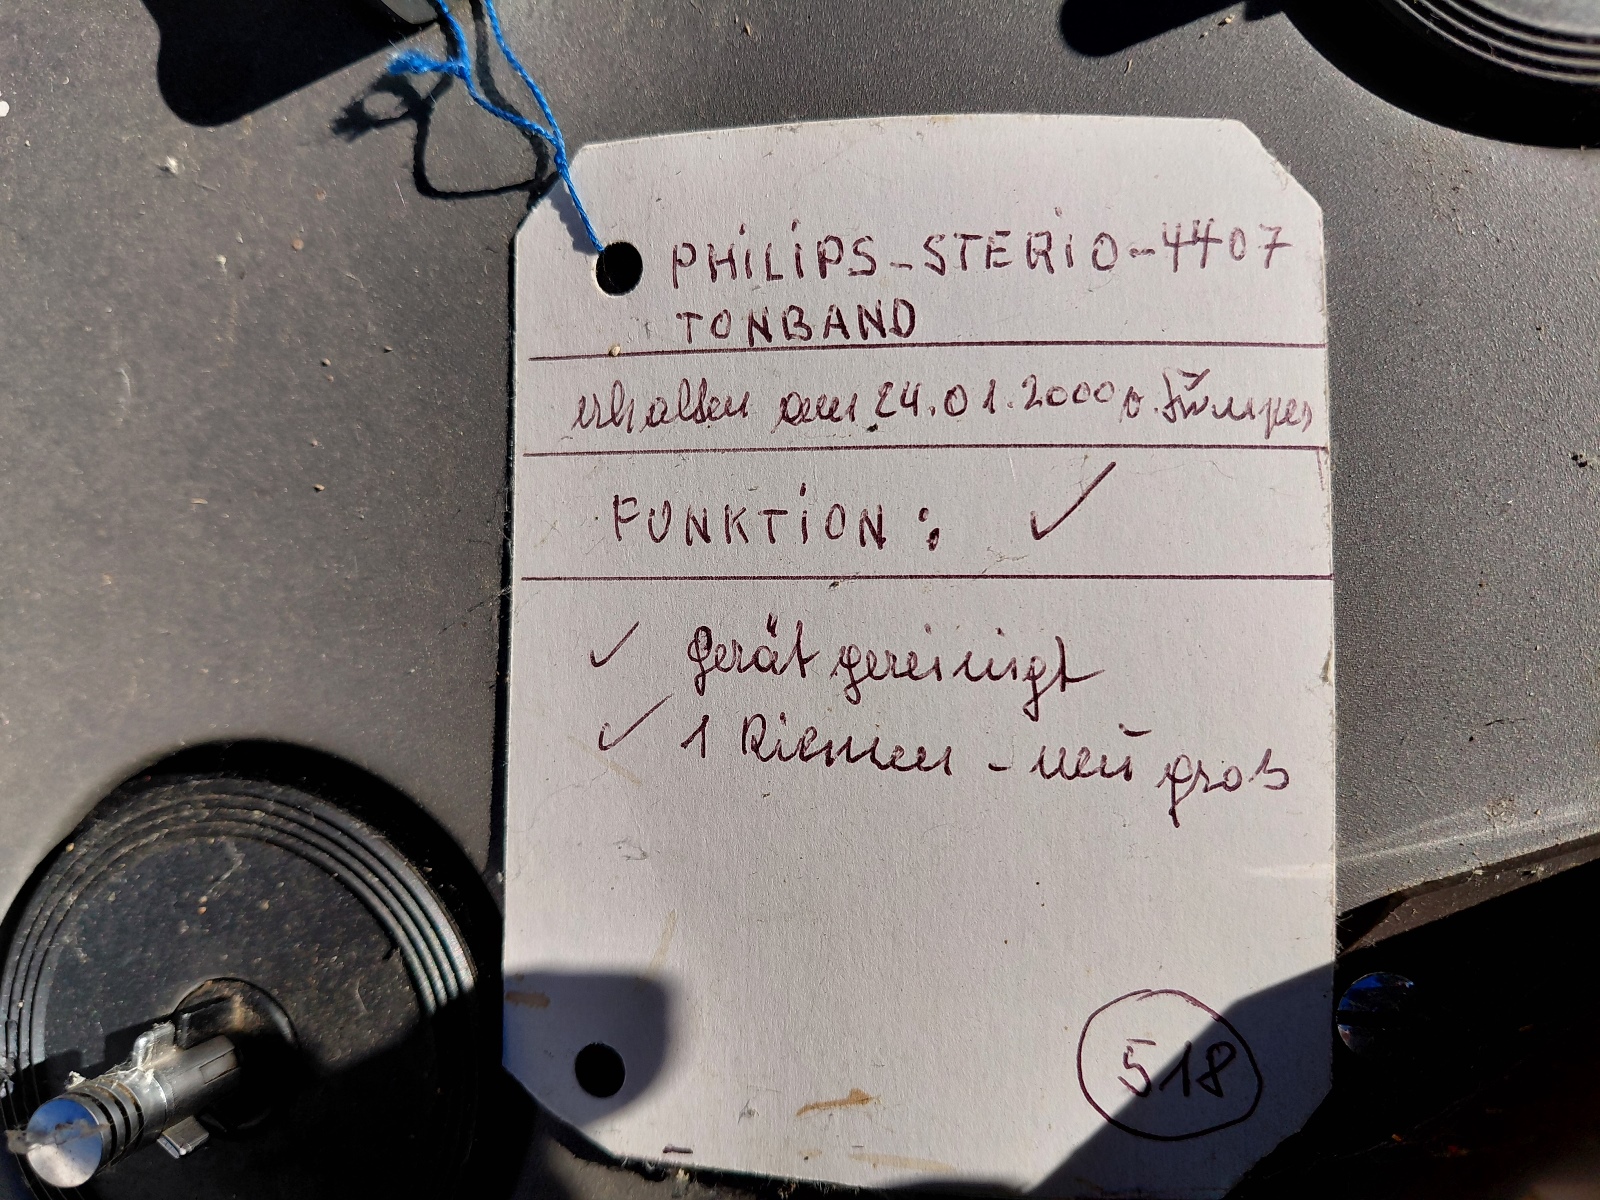 PHILIPS-STERIO-4407
TONBAND
erhalten am 24.01.2000 v.
FUNKTION: ✓
✓ Gerät gereinigt
✓ 1 Riemen - neu groß
518